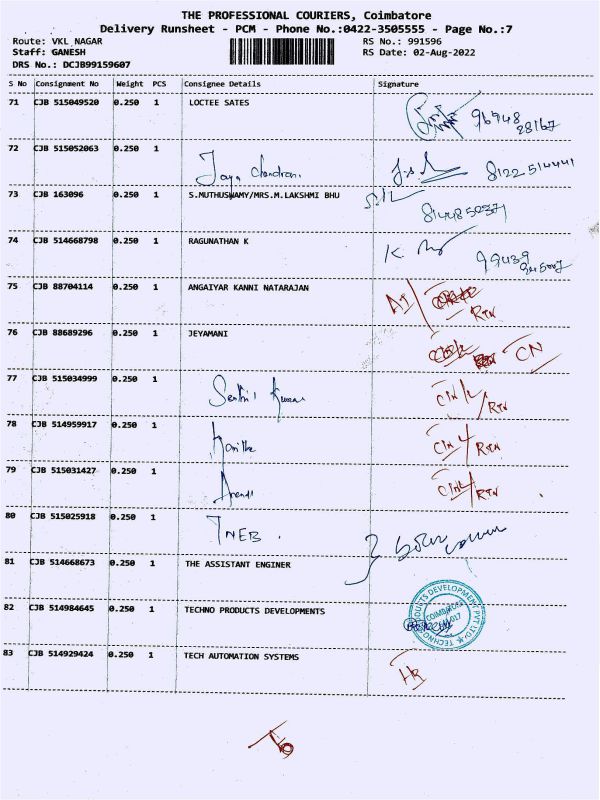 THE PROFESSIONAL COURIERS, Coimbatore
Delivery Runsheet - PCM - Phone No.:0422-3505555 - Page No.:7
Route: VKL NAGAR
RS No.: 991596
Staff: GANESH
RS Date: 02-Aug-2022
DRS No.: DCJB99159607
S No Consignment No Weight PCS Consignee Details Signature
71 CJB 515049520 0.250 1 LOCTEE SATES 96748
28167
72 CJB 515052063 0.250 1 Jaya Chandran. 8122 514441
73 CJB 163096 0.250 1 S.MUTHUSWAMY/MRS.M.LAKSHMI BHU
74 CJB 514668798 0.250 1 RAGUNATHAN K K. 99439
75 CJB 88704114 0.250 1 ANGAIYAR KANNI NATARAJAN RTN
76 CJB 88689296 0.250 1 JEYAMANI CN
77 CJB 515034999 0.250 1 Senthil Kumar RTN
78 CJB 514959917 0.250 1 Kavitha RTN
79 CJB 515031427 0.250 1 Anand RTN
80 CJB 515025918 0.250 1 TNEB.
81 CJB 514668673 0.250 1 THE ASSISTANT ENGINER
82 CJB 514984645 0.250 1 TECHNO PRODUCTS DEVELOPMENTS
TECHNO PRODUCTS DEVELOPMENT PVT LTD
83 CJB 514929424 0.250 1 TECH AUTOMATION SYSTEMS